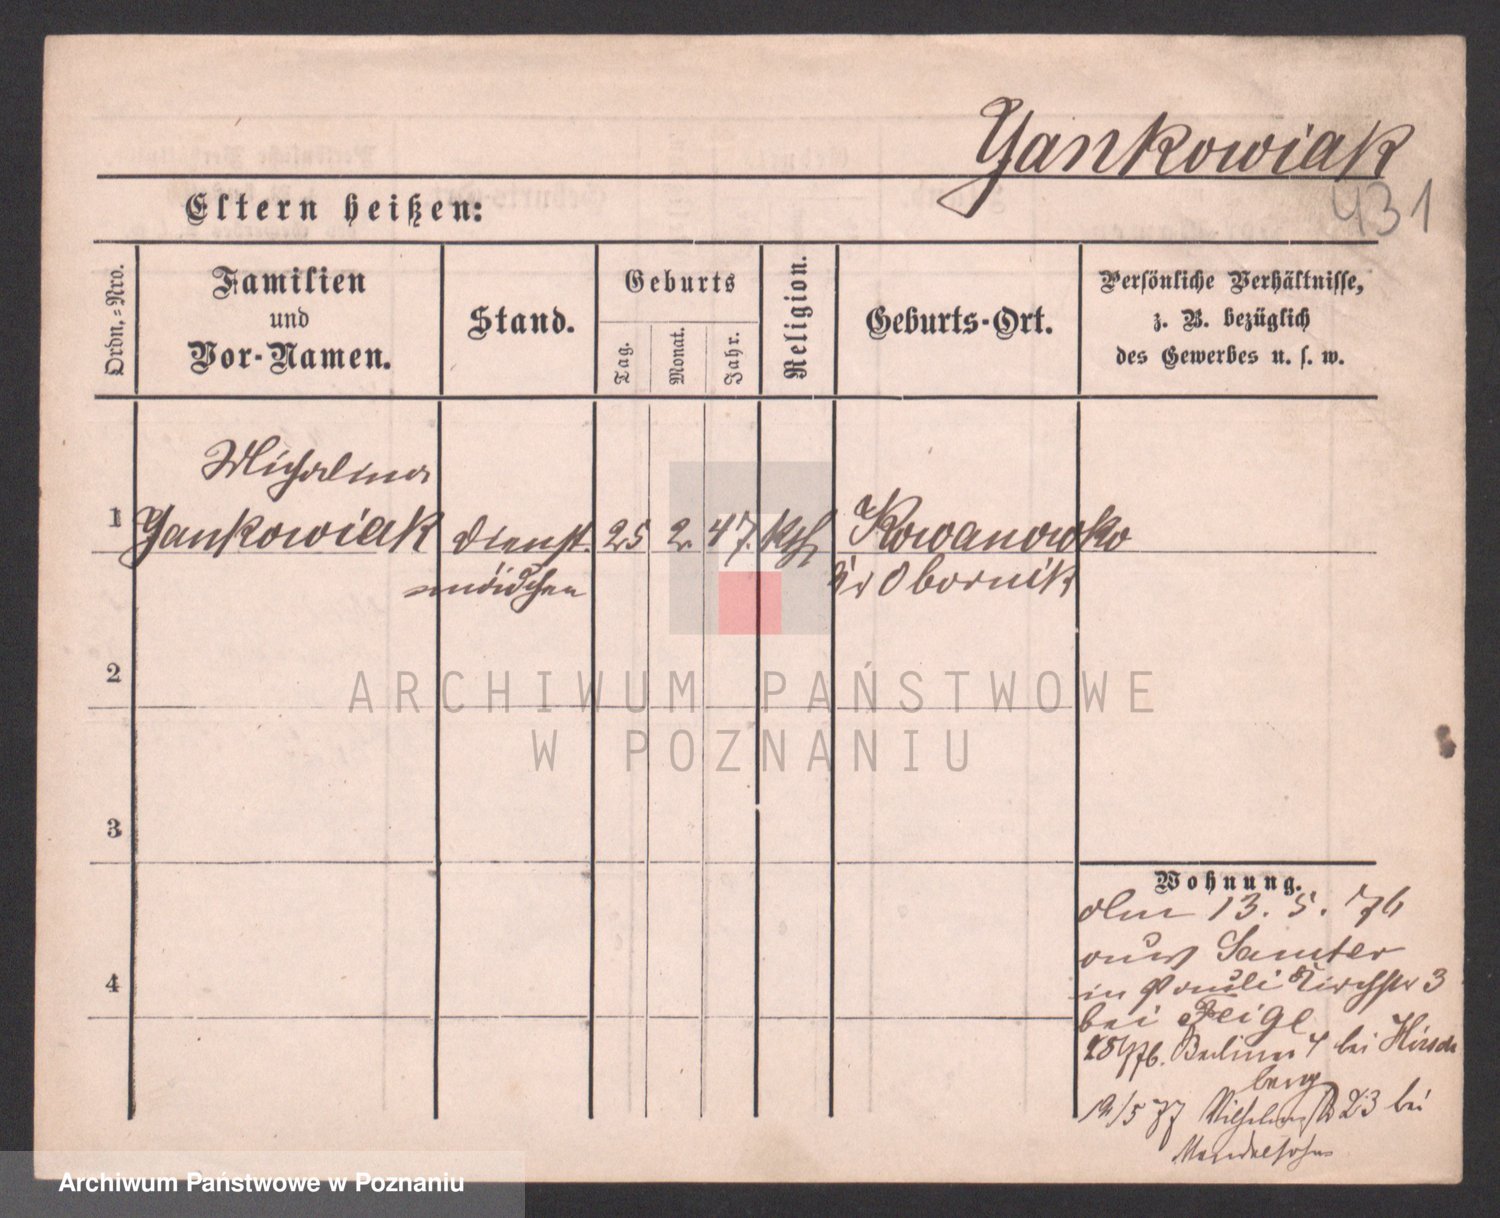 Yankowiak
431
Eltern heißen:
Ordn.-Nro.
Familien
und
Vor-Namen.
Stand.
Geburts
Tag.
Monat.
Jahr.
Religion.
Geburts-Ort.
Persönliche Verhältnisse,
z. B. bezüglich
des Gewerbes u. s. w.
Michalina
1 Yankowiak Dienst 25 2. 47. kth Kowanowko
mädchen Kr Obornik
2
3
4
Wohnung.
Am 13. 5. 76
aus Samter
in Pauli Kirchstr 3
bei Feige
Berliner 4 bei Hirsch
berg
12/5 77 Wilhelmstr 23 bei
Mendelsohn
ARCHIWUM PAŃSTWOWE
W POZNANIU
Archiwum Państwowe w Poznaniu